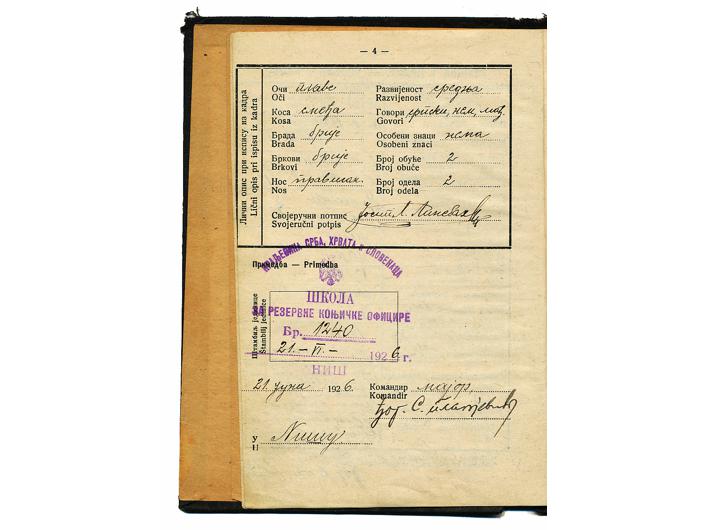 — 4 —
Лични опис при испису из кадра
Lični opis pri ispisu iz kadra
Очи плаве
Oči
Развијеност средња
Razvijenost
Коса смеђа
Kosa
Говори српски, нем, мађ.
Govori
Брада брије
Brada
Особени знаци нема
Osobeni znaci
Бркови брије
Brkovi
Број обуће 2
Broj obuće
Нос правилан
Nos
Број одела 2
Broj odela
Својеручни потпис Јосип Л.
Svojeručni potpis
КРАЉЕВИНА СРБА, ХРВАТА И СЛОВЕНАЦА
Примедба — Primedba
Штамбиљ јединице
Stambilj jedinice
ШКОЛА
ЗА РЕЗЕРВНЕ КОЊИЧКЕ ОФИЦИРЕ
Бр. 1240
21.–VI.– 1926 г.
НИШ
21. јуна 1926.
Командир мајор,
Komandir
С.
У Нишу
U